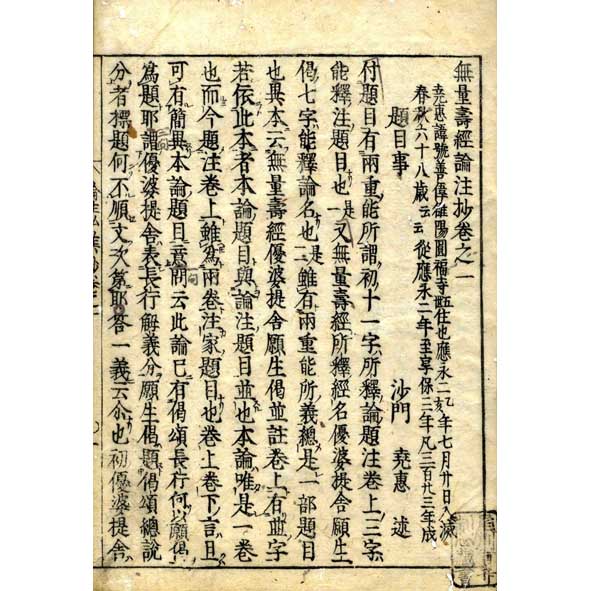 無量壽經論注抄卷之一
堯惠諱號善偉雒陽圓福寺五住也應永二乙亥年七月廿日入滅
春秋六十八歲云云從應永二年至享保三年凡三百廿三年成
題目事 沙門 堯惠 述
付題目有兩重能所謂初十一字所釋論題注卷上三字
能釋注題目也是一又無量壽經所釋經名優婆提舍願生
偈七字能釋論名也是二雖有兩重能所義總是一部題目
也異本云無量壽經優婆提舍願生偈並註卷上有並字
若依此本者本論題目與論注題目並也本論唯是一卷
也而今題注卷上雖為兩卷注家題目也卷上卷下言且
可有簡異本論題目意問云此論已有偈頌長行何以願偈
為題耶謂優婆提舍表長行解義分願生偈題偈頌總說
分者標題何不順文次第耶答一義云尒也初優婆提舍